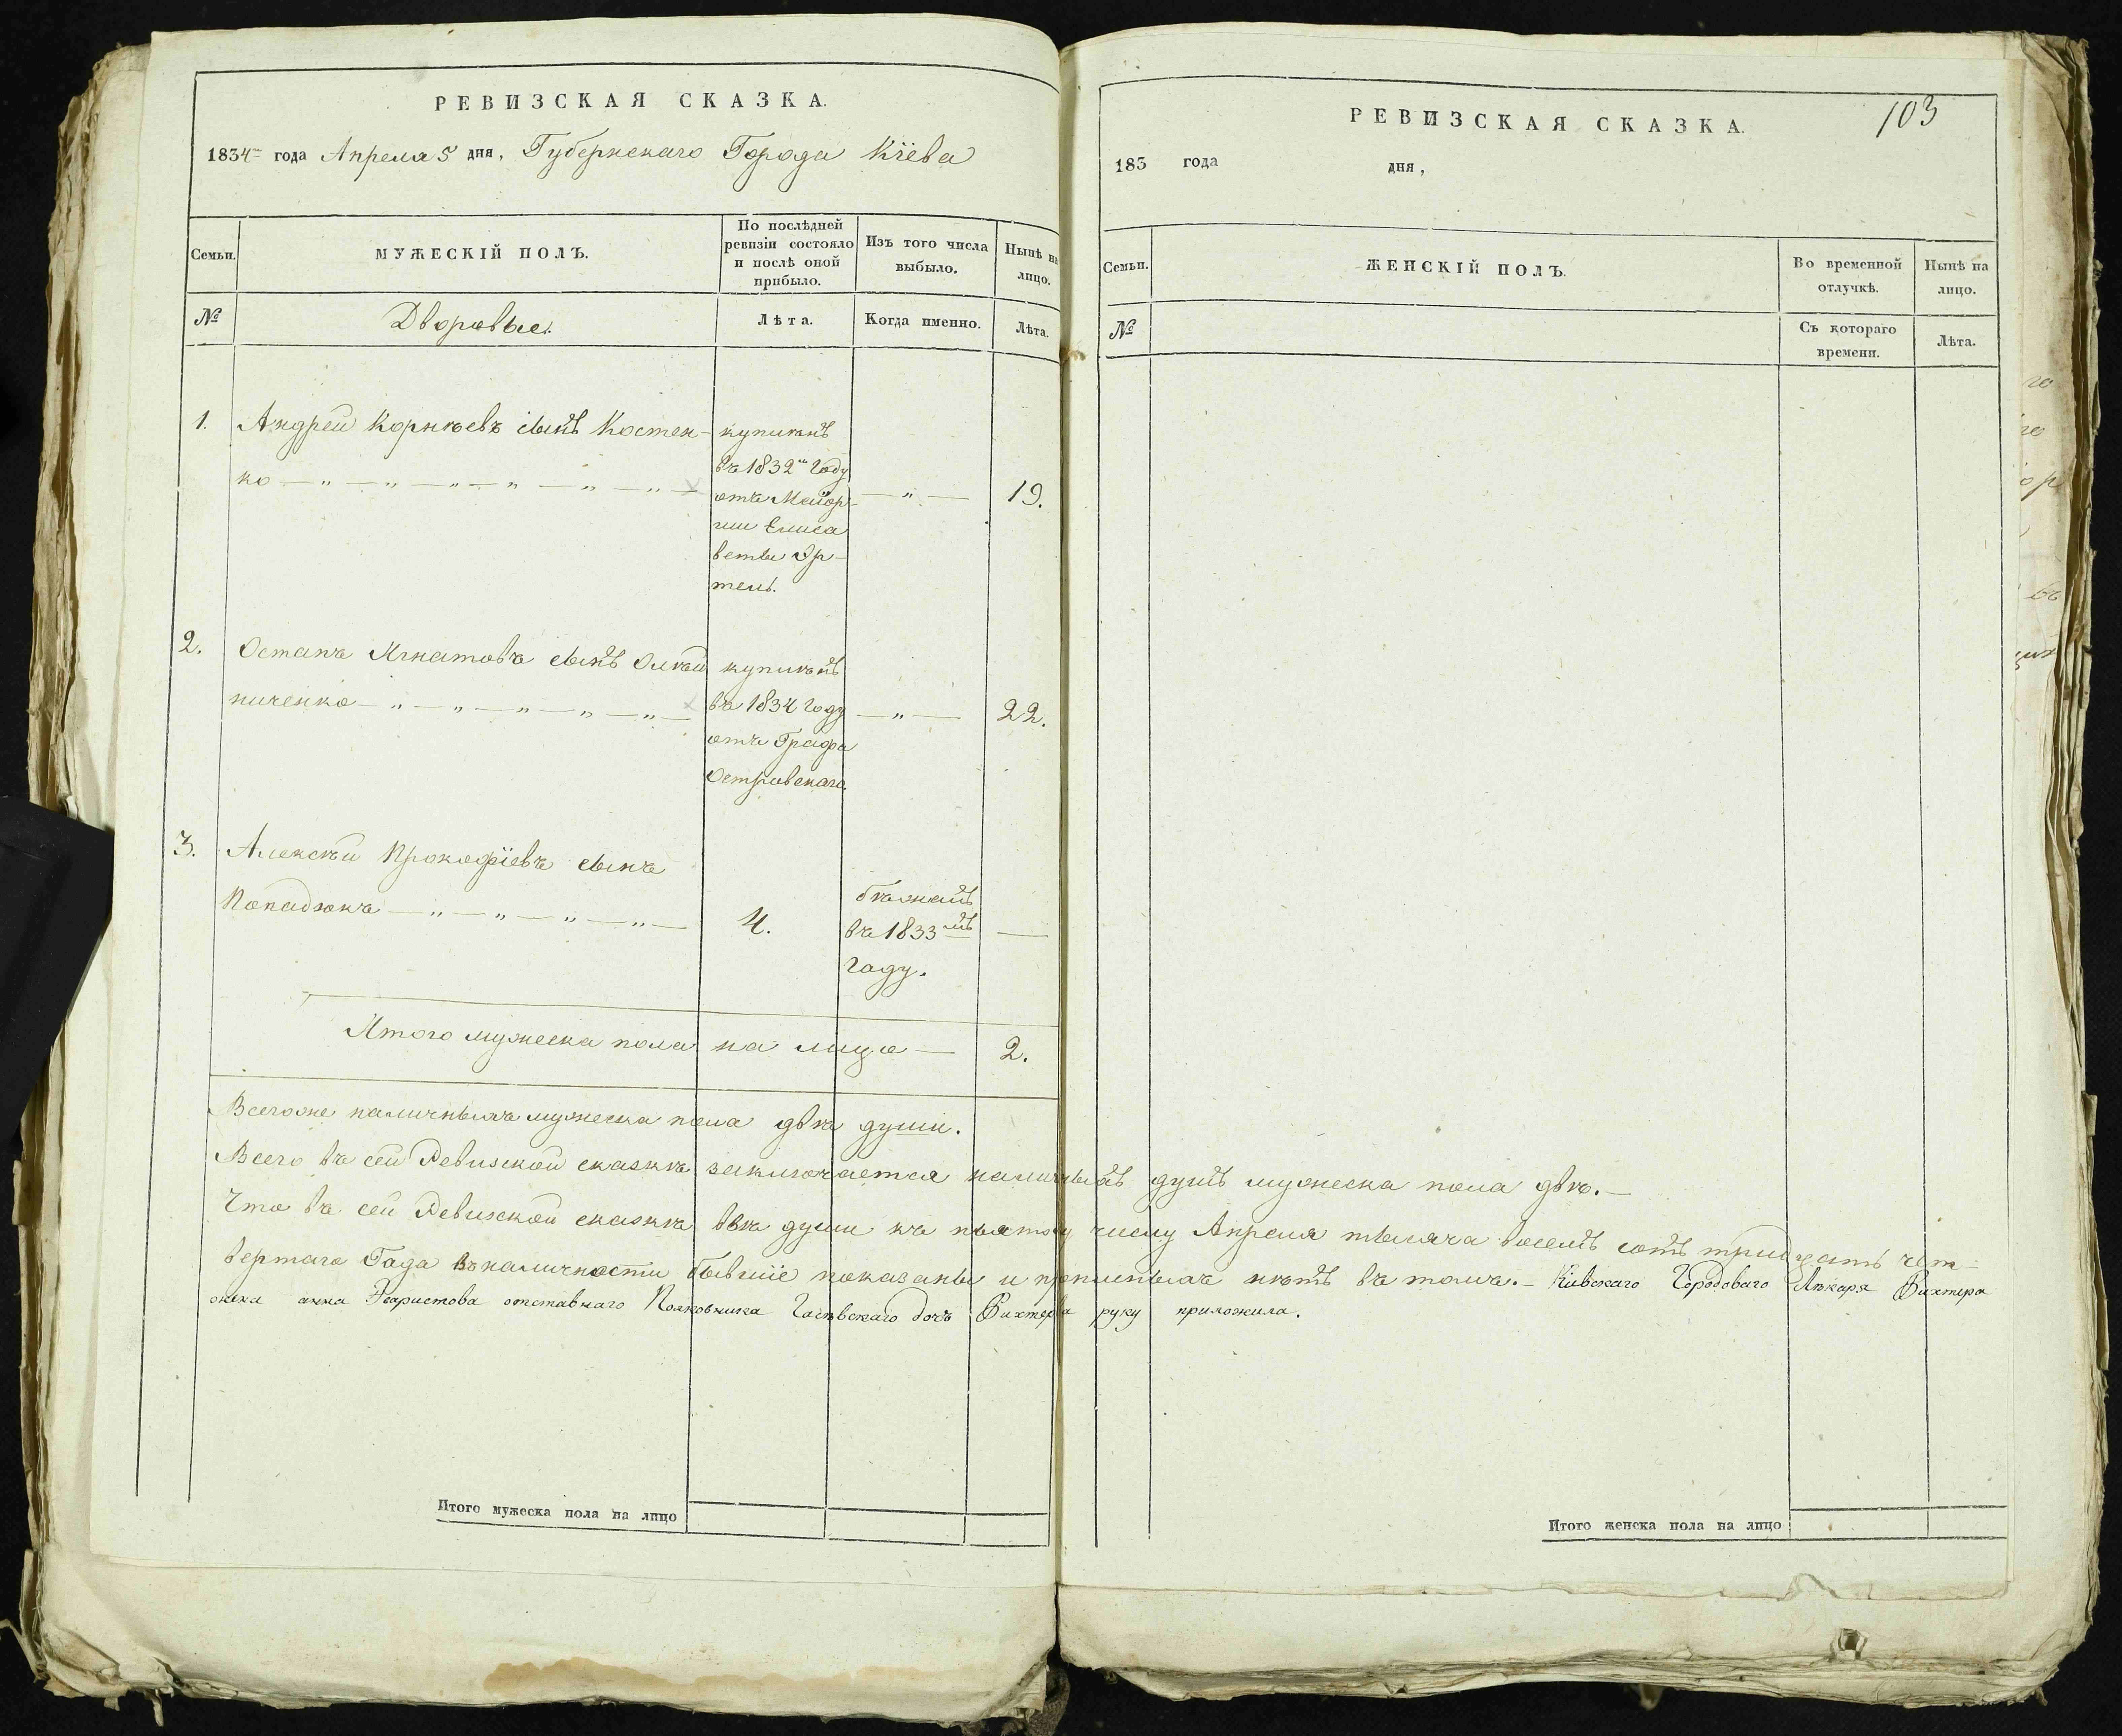 РЕВИЗСКАЯ СКАЗКА.
1834го года Апреля 5 дня, Губернскаго Города Кіева
Семьи.
МУЖЕСКІЙ ПОЛЪ.
По послѣдней
ревизіи состояло
и послѣ оной
прибыло.
Изъ того числа
выбыло.
Нынѣ на
лицо.
№
Дворовые.
Лѣта.
Когда именно.
Лѣта.
1.
Андрей Корнѣевъ сынъ Костен-
ко — „ — „ — „ — „ — „ — „ —
купленъ
въ 1832м Году
отъ Маіор-
ши Елиса
веты Эр-
тель.
— „ —
19.
2.
Остапъ Игнатовъ сынъ Олѣй
ниченко — „ — „ — „ — „ — „ —
купленъ
въ 1834 Году
отъ Графа
Островскаго.
— „ —
22.
3.
Алексѣй Прокофіевъ сынъ
Попадюкъ — „ — „ — „ — „ —
4.
бѣжалъ
въ 1833мъ
Году.
—
Итого мужеска пола на лицо — 2.
Всегоже наличныхъ мужеска пола двѣ души.
Всего въ сей Ревизской сказкѣ заключается наличныхъ душъ мужеска пола двѣ. —
Что въ сей Ревизской сказкѣ всѣ души къ пятому числу Апреля тысяча восемь сотъ тридцать чет-
вертаго Года въ наличности бывшіе показаны и прописныхъ нѣтъ въ томъ. — Кіевскаго Городоваго Лѣкаря Фихтера
жена анна отставнаго Полковника дочь Фихтерва руку приложила.
Итого мужеска пола на лицо
РЕВИЗСКАЯ СКАЗКА.
103
183 года дня,
Семьи.
ЖЕНСКІЙ ПОЛЪ.
Во временной
отлучкѣ.
Нынѣ на
лицо.
№
Съ котораго
времени.
Лѣта.
Итого женска пола на лицо